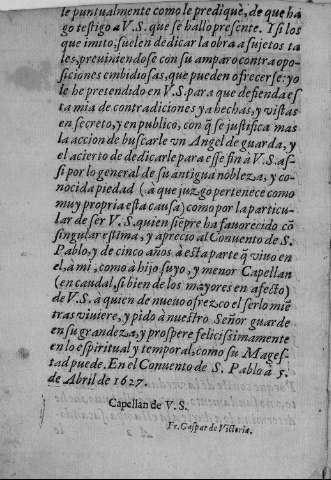 le puntualmente como le prediquè, de que ha
go testigo a V.S. que se hallo presente. I si los
que imito, suelen dedicar la obra a sujetos ta
les, previniendose con su amparo contra opo-
siciones embidiosas, que pueden ofrecerse: yo
le he pretendido en V.S. para que defienda es
ta mia de contradiciones ya hechas, y vistas
en secreto, y en publico, con q̃ se justifica mas
la accion de buscarle vn Angel de guarda, y
el acierto de dedicarle para esse fin à V.S. as-
si por lo general de su antigua nobleza, y co-
nocida piedad (à que juzgo pertenece como
muy propria esta causa) como por la particu-
lar de ser V.S. quien siẽpre ha favorecido cõ
singular estima, y aprecio al Conuento de S.
Pablo, y de cinco años à esta parte q̃ viuo en
el, à mi, como à hijo suyo, y menor Capellan
(en caudal, si bien de los mayores en afecto)
de V.S. à quien de nuevo ofrezco el serlo miẽ
tras viuiere, y pido à nuestro Señor guarde
en su grandeza, y prospere felicissimamente
en lo espiritual y temporal, como su Mages-
tad puede. En el Conuento de S. Pablo à 5.
de Abril de 1627.
Capellan de V.S.
Fr. Gaspar de Victoria.